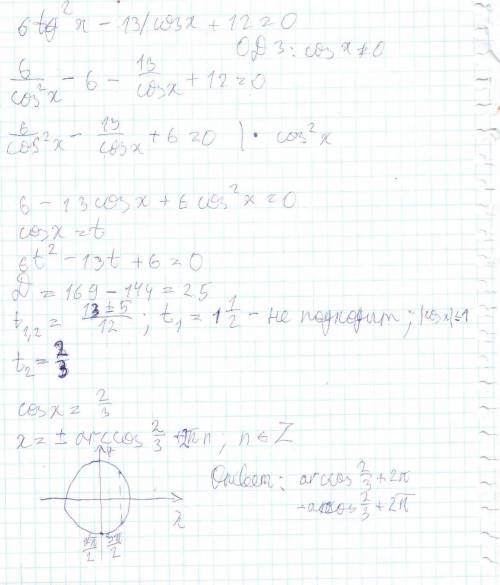 6tg²x - 13/cosx + 12 = 0
ОДЗ: cosx ≠ 0
6/cos²x - 6 - 13/cosx + 12 = 0
6/cos²x - 13/cosx + 6 = 0 | · cos²x
6 - 13cosx + 6cos²x = 0
cosx = t
6t² - 13t + 6 = 0
D = 169 - 144 = 25
t₁,₂ = (13 ± 5)/12 ; t₁ = 1 1/2 - не подходит; |cosx|≤1
t₂ = 2/3
cosx = 2/3
x = ± arccos 2/3 + 2πn, n ∈ Z
Ответ: arccos 2/3 + 2π
-arccos 2/3 + 2π
x